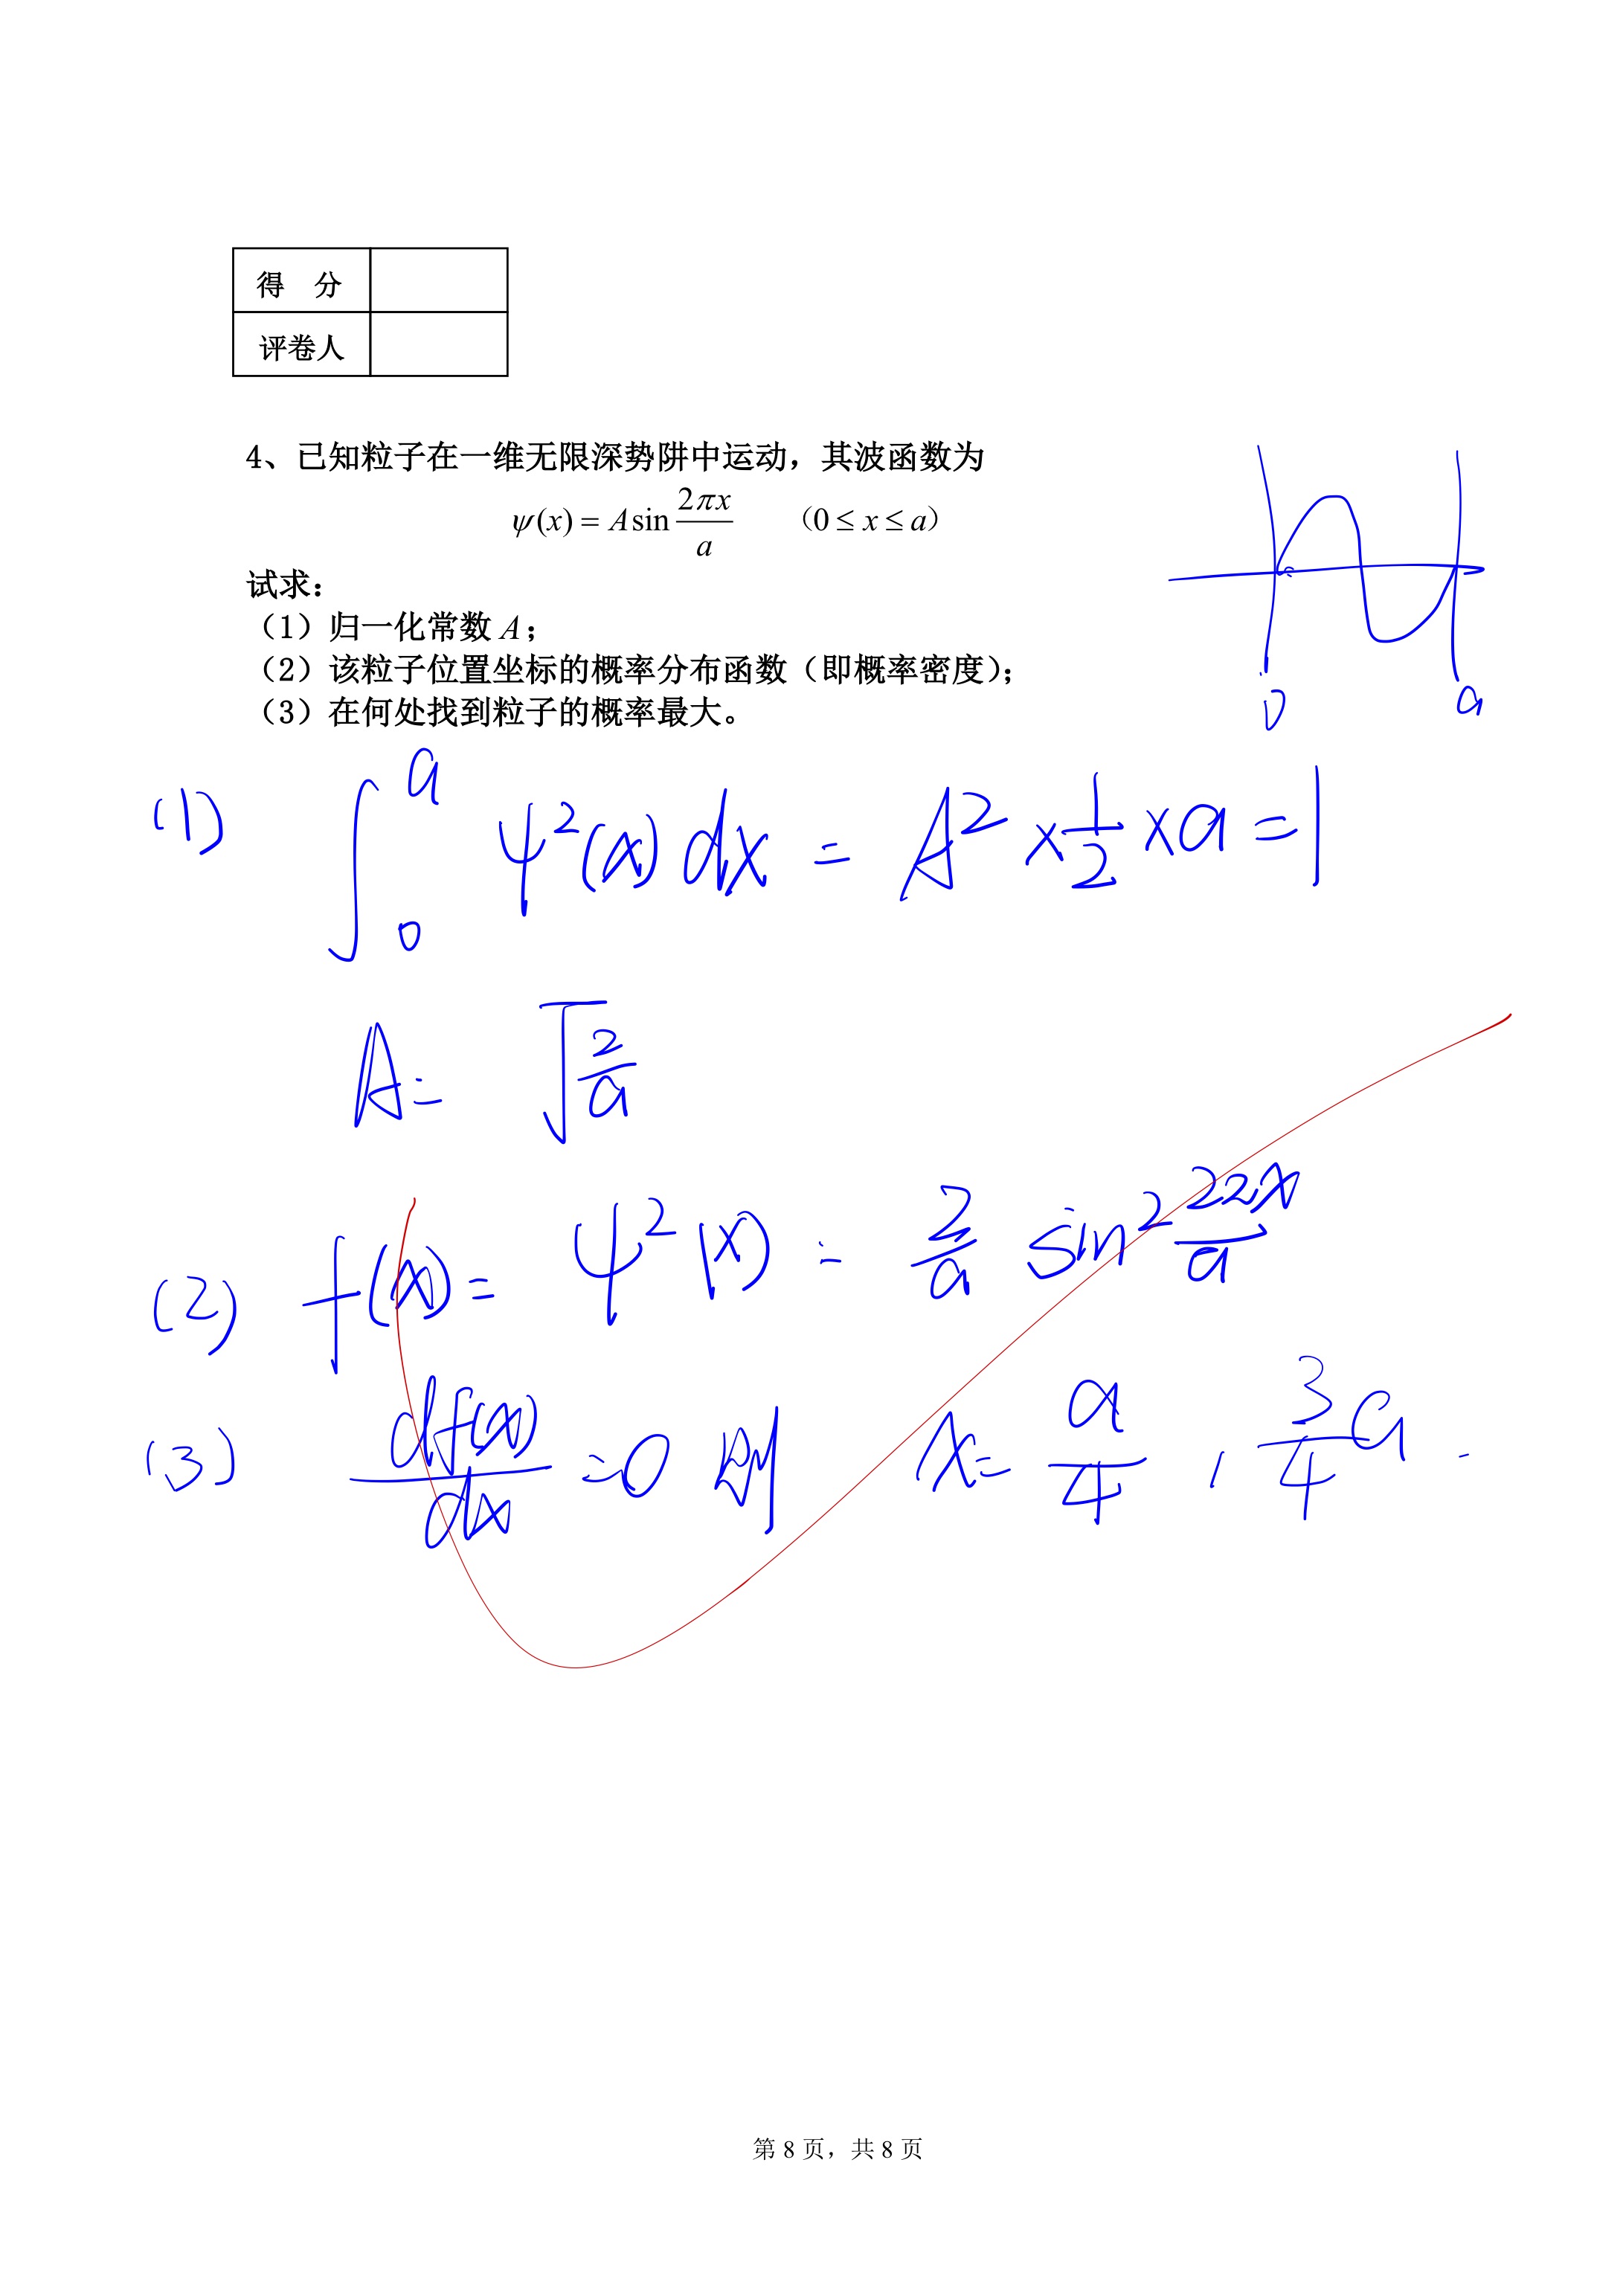 得 分
评卷人
4、已知粒子在一维无限深势阱中运动，其波函数为
ψ(x) = A sin 2πx/a （0 ≤ x ≤ a）
试求：
（1）归一化常数 A；
（2）该粒子位置坐标的概率分布函数（即概率密度）；
（3）在何处找到粒子的概率最大。
0 a
(1) ∫₀ᵃ ψ²(x) dx = A² × 1/2 × a = 1
A = √(2/a)
(2) f(x) = ψ²(x) = 2/a sin² 2πx/a
(3) df(x)/dx = 0 时 x = a/4 , 3/4 a
第 8 页，共 8 页